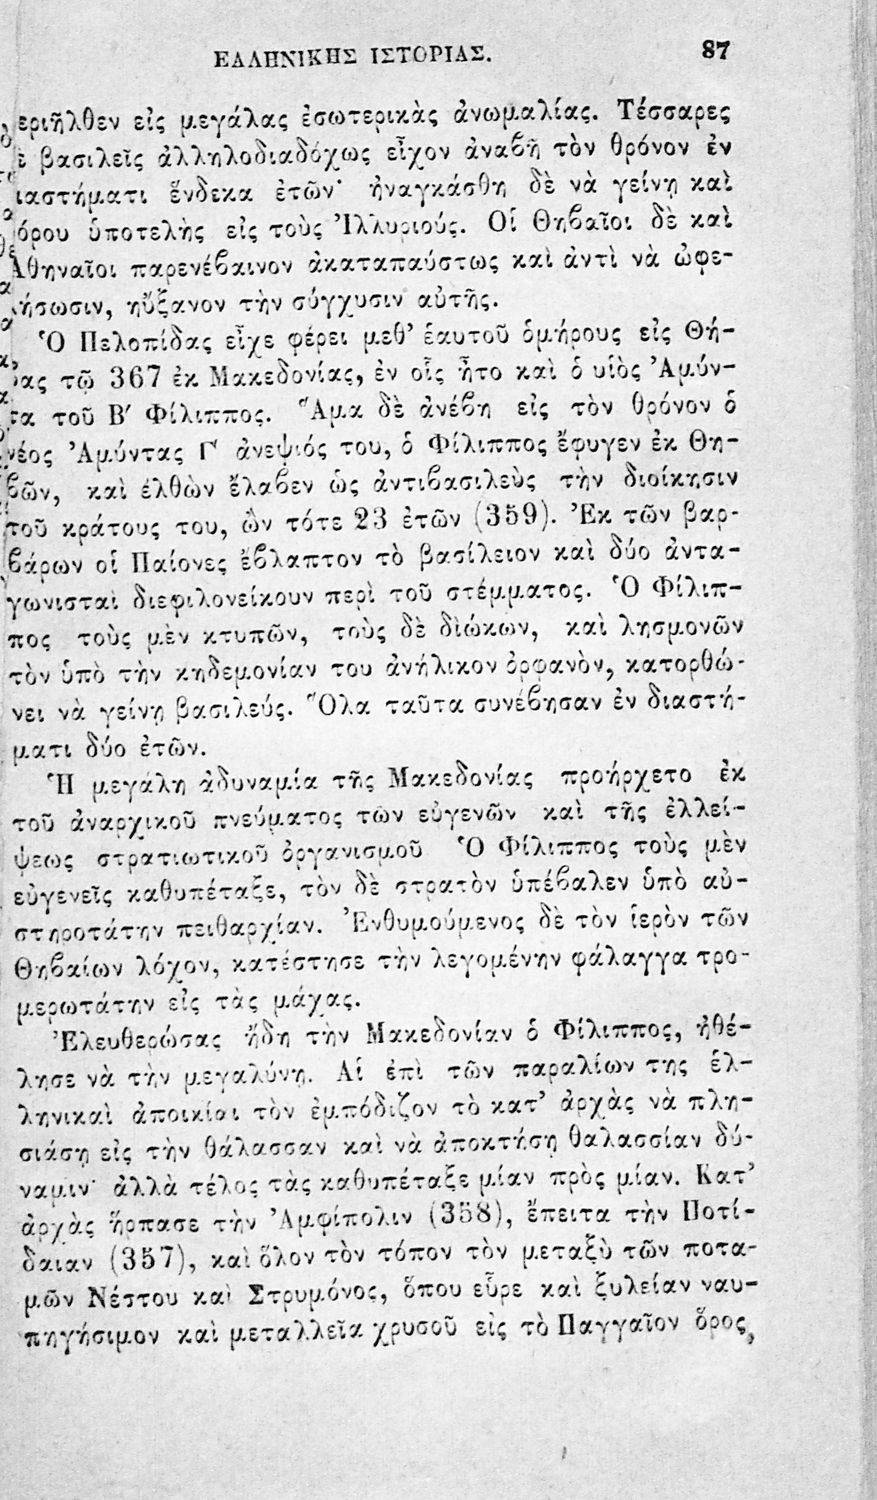 ΕΛΛΗΝΙΚΗΣ ΙΣΤΟΡΙΑΣ. 87
περιῆλθεν εἰς μεγάλας ἐσωτερικὰς ἀνωμαλίας. Τέσσαρες
δὲ βασιλεῖς ἀλληλοδιαδόχως εἶχον ἀναβῆ τὸν θρόνον ἐν
διαστήματι ἕνδεκα ἐτῶν· ἠναγκάσθη δὲ νὰ γείνῃ καὶ
φόρου ὑποτελὴς εἰς τοὺς Ἰλλυριούς. Οἱ Θηβαῖοι δὲ καὶ
Ἀθηναῖοι παρενέβαινον ἀκαταπαύστως καὶ ἀντὶ νὰ ὠφε-
λήσωσιν, ηὔξανον τὴν σύγχυσιν αὐτῆς.
Ὁ Πελοπίδας εἶχε φέρει μεθ’ ἑαυτοῦ ὁμήρους εἰς Θή-
βας τῷ 367 ἐκ Μακεδονίας, ἐν οἷς ἦτο καὶ ὁ υἱὸς Ἀμύν-
τα τοῦ Β′ Φίλιππος. Ἅμα δὲ ἀνέβη εἰς τὸν θρόνον ὁ
νέος Ἀμύντας Γ′ ἀνεψιός του, ὁ Φίλιππος ἔφυγεν ἐκ Θη-
βῶν, καὶ ἐλθὼν ἔλαβεν ὡς ἀντιβασιλεὺς τὴν διοίκησιν
τοῦ κράτους του, ὢν τότε 23 ἐτῶν (359). Ἐκ τῶν βαρ-
βάρων οἱ Παίονες ἔβλαπτον τὸ βασίλειον καὶ δύο ἀντα-
γωνισταὶ διεφιλονείκουν περὶ τοῦ στέμματος. Ὁ Φίλιπ-
πος τοὺς μὲν κτυπῶν, τοὺς δὲ διώκων, καὶ λησμονῶν
τὸν ὑπὸ τὴν κηδεμονίαν του ἀνήλικον ὀρφανὸν, κατορθώ-
νει νὰ γείνῃ βασιλεύς. Ὅλα ταῦτα συνέβησαν ἐν διαστή-
ματι δύο ἐτῶν.
Ἡ μεγάλη ἀδυναμία τῆς Μακεδονίας προήρχετο ἐκ
τοῦ ἀναρχικοῦ πνεύματος τῶν εὐγενῶν καὶ τῆς ἐλλεί-
ψεως στρατιωτικοῦ ὀργανισμοῦ Ὁ Φίλιππος τοὺς μὲν
εὐγενεῖς καθυπέταξε, τὸν δὲ στρατὸν ὑπέβαλεν ὑπὸ αὐ-
στηροτάτην πειθαρχίαν. Ἐνθυμούμενος δὲ τὸν ἱερὸν τῶν
Θηβαίων λόχον, κατέστησε τὴν λεγομένην φάλαγγα τρο-
μερωτάτην εἰς τὰς μάχας.
Ἐλευθερώσας ἤδη τὴν Μακεδονίαν ὁ Φίλιππος, ἠθέ-
λησε νὰ τὴν μεγαλύνῃ. Αἱ ἐπὶ τῶν παραλίων της ἑλ-
ληνικαὶ ἀποικίαι τὸν ἐμπόδιζον τὸ κατ’ ἀρχὰς νὰ πλη-
σιάσῃ εἰς τὴν θάλασσαν καὶ νὰ ἀποκτήσῃ θαλασσίαν δύ-
ναμιν· ἀλλὰ τέλος τὰς καθυπέταξε μίαν πρὸς μίαν. Κατ’
ἀρχὰς ἥρπασε τὴν Ἀμφίπολιν (358), ἔπειτα τὴν Ποτί-
δαιαν (357), καὶ ὅλον τὸν τόπον τὸν μεταξὺ τῶν ποτα-
μῶν Νέστου καὶ Στρυμόνος, ὅπου εὗρε καὶ ξυλείαν ναυ-
πηγήσιμον καὶ μεταλλεῖα χρυσοῦ εἰς τὸ Παγγαῖον ὄρος,